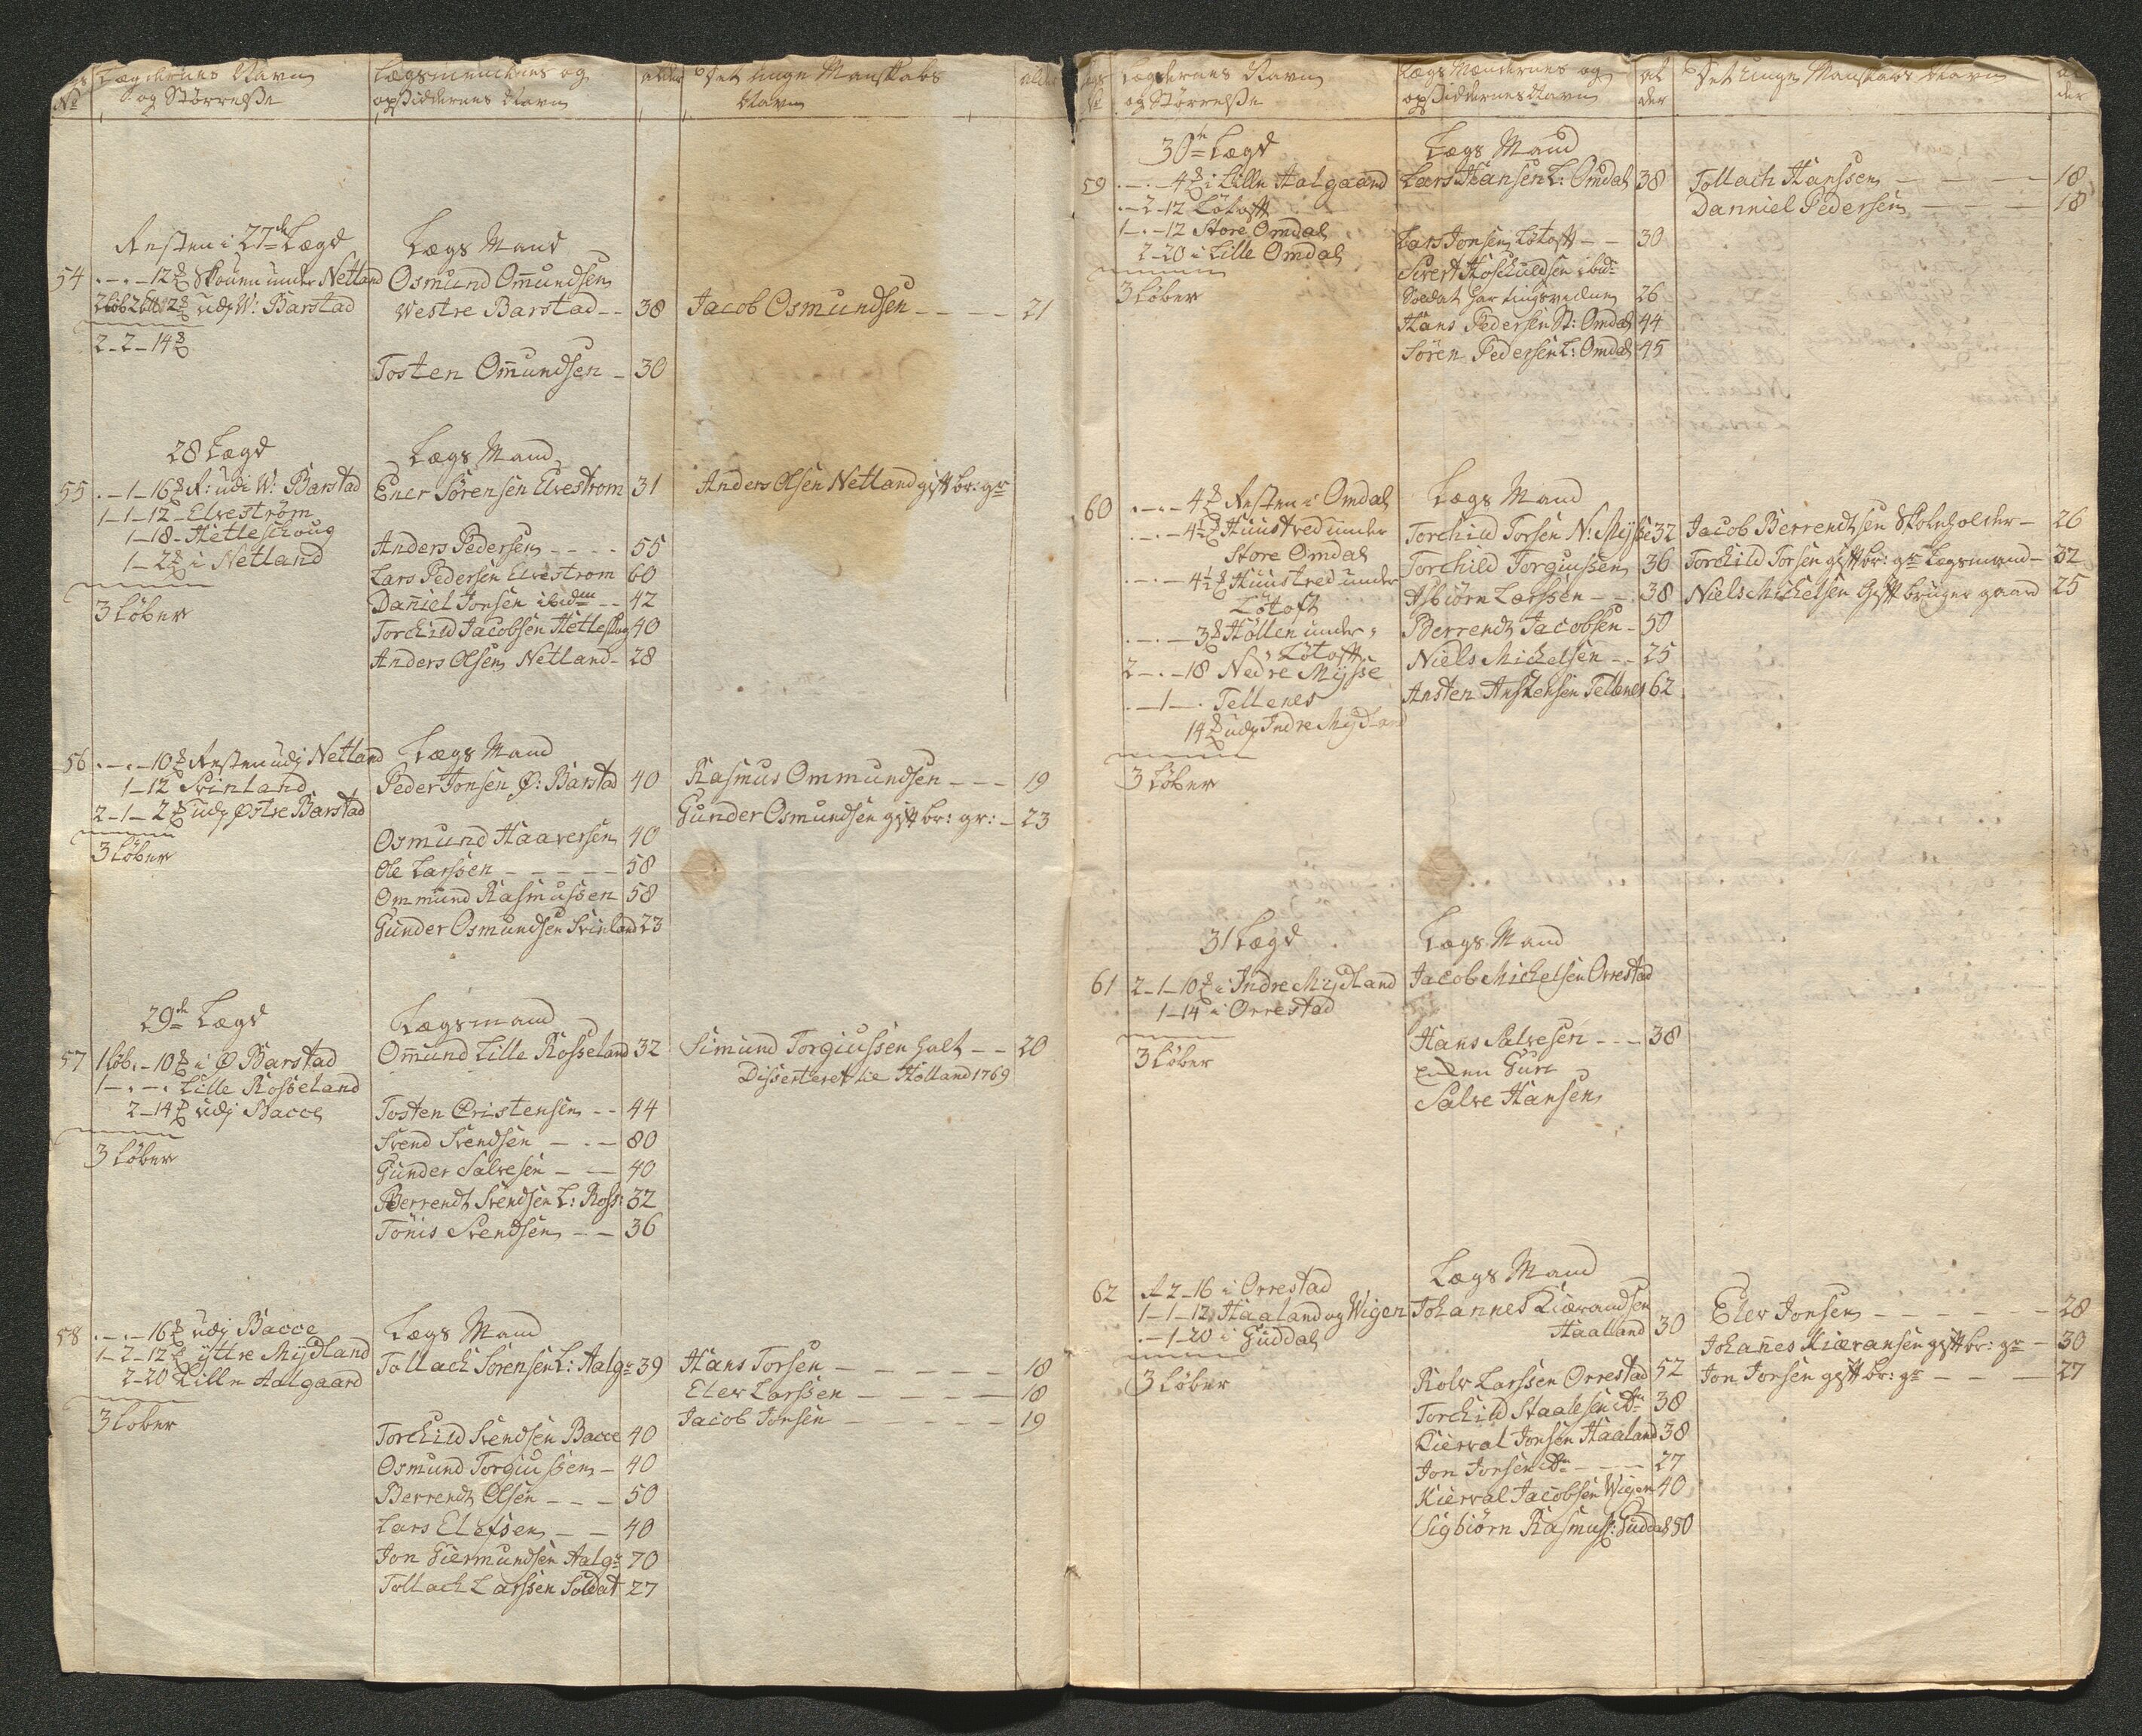 No
Lægdernes Navn
og Størrelße
Lægsmendenes og
opsiddernes Navn
alder
Det unge Manskabs
Navn
alder
Resten i 27de Lægd
Lægs Mand
54 . - . - 12 ℔ Skouen under Netland
Osmund Om̄undsen
2 løb 2 udj W: Barstad
Westre Barstad - - 38
Jacob Osmundsen - - - - 21
2 - 2 - 14 ℔
Tosten Om̄undsen - 30
28 Lægd
Lægs Mand
55 . - 1 - 16 ℔ R: udi W: Barstad
Ener Sørensen Elvestrøm 31
Anders Olsen Netland gift br: gr
1 - 1 - 12 - Elvestrøm
1 - 18 - Hetleskoug
1 - 2 ℔ i Netland
Anders Pedersen - - - - 55
Lars Pedersen Elvestrøm 60
Dan̄iel Jonsen ibidem - - 42
3 Løber
Torchild Jacobsen Hetleskog 40
Anders Olsen Netland - 28
56 . - . - 10 ℔ Resten udj Netland
Lægs Mand
1 - 12 Svinland
Peder Jonsen Ø: Barstad 40
Rasmus Ommundsen - - - 19
2 - 1 - 2 ℔ udj Østre Barstad
Gunder Osmundsen gift br: gr: - 23
3 Løber
Osmund Haaversen 40
Ole Larssen - - - - - 58
Ommund Rasmussen 58
Gunder Osmundsen Svinland 23
29de Lægd
Lægsmand
57 1 løb. - 10 ℔ i Ø Barstad
Om̄und Lille Rosseland 32
Simund Torgiussen halt - - 20
Disserteret tie Holland 1769
1 - . - . Lille Rosseland
2 - 14 ℔ udj Bacce
Tosten Cristensen - - 44
Svend Svendsen - . - 80
3 Løber
Gunder Salvesen - - 40
Berrendt Svendsen L: Ross: 32
Tønis Svendsen - - 36
58 . - . - 16 ℔ udj Bacce
Lægs Mand
1 - 2 - 12 ℔ yttre Mydland
Tollach Sørensen L: Aalgr 39
Hans Torsen - - - - - 18
2 - 20 Lille Aalgaard
Elev Larssen - - - - 18
3 Løber
Jacob Jonsen - - - - - 19
Torchild Svendsen Bacce 40
Osmund Torgiussen - 40
Berrendt Olsen - - - 50
Lars Elefsen - - 40
Jon Giermundsen Aalgr 70
Tollach Larssen Soldat 27
Lægdernes Navn
og Størrelße
Lægs Mændernes og
opsiddernes Navn
al
der
Det unge Manskabs Navn
al
der
30te Lægd
Lægs Mand
59 . - . - 4 ℔ i Lille Aalgaard
Lars Hansen L: Omdal 38
Tollach Hanssen - - - - - 18
. - 2 - 12 Løtoft
Danniel Pedersen - - - 18
1 - . - 12 Store Omdal
Lars Jonsen Løtoft - - 30
2 - 20 i Lille Omdal
Sivert Hoskuldsen ibid
3 Løber
Soldat har 26
Hans Pedersen St: Omdal 44
Søren Pedersen L: Omdal 45
60 . - . - 4 ℔ Resten i Omdal
Lægs Mand
. - . - 4½ ℔ Huustred under
Store Omdal
Torchild Torsen N: Mysse 32
Jacob Berrendtsen Skoleholder - 26
. - . - 4½ ℔ Huustred under
Løtoft
Torchild Torgiussen 36
Torchild Torsen gift br: gr Lægsmand - 32
Asbiørn Larssen - - 38
Niels Michelsen Gift bruger gaard 25
. - . - 3 ℔ Hollen under
Løtoft
Berrendt Jacobsen - 50
2 - . - 18 Nedre Mysse
Niels Michelsen - - 25
. - 1 - . Tellenes
Ansten Anstensen Tellenes 62
14 ℔ udj Indre Mydland
3 Løber
31 Lægd
Lægs Mand
61 2 - 1 - 10 ℔ i Indre Mydland
Jacob Michelsen Orrestad
1 - 14 i Orrestad
3 Løber
Hans Salvesen - - - 38
Guri
Salve Hansen
Lægs Mand
62 R 2 - 16 i Orrestad
1 - 1 - 12 Haaland og Wigen
Johannes Kiærandsen
Haaland 30
Elev Jonsen - - - - - 28
. - 1 - 20 i Guddal
Johan̄es Kiæransen gift br: gr - 30
3 Løber
Rolv Larssen Orrestad 52
Jon Jonsen gift br: gr - - - 27
Torchild Staalesen do 38
Kierval Jonsen Haaland 38
Jon Jonsen do - - - 27
Kierval Jacobsen Wigen 40
Sigbiørn Rasmuss: Guddal 50